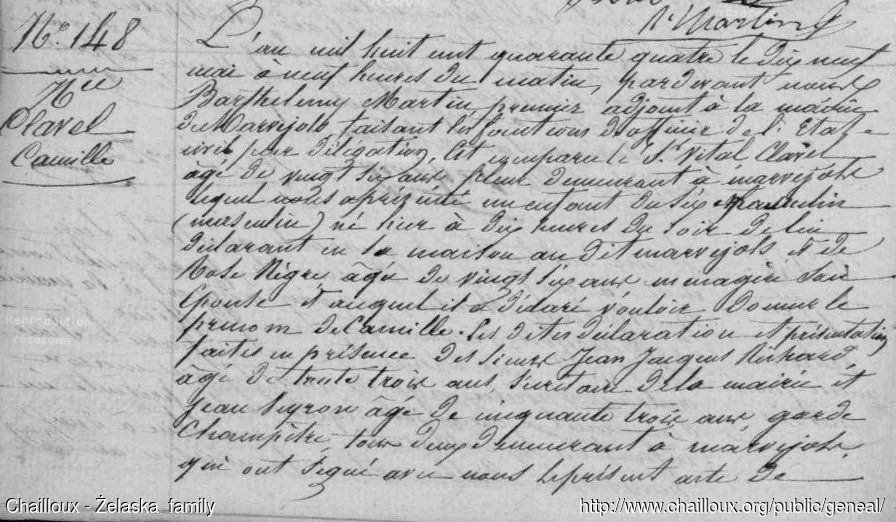 Martin
N° 148
Nce
Clavel
Camille
L'an mil huit cent quarante quatre le dix neuf
mai à neuf heures du matin, pardevant nous
Barthelemy Martin, premier adjoint à la mairie
de Marvejols faisant les fonctions d'officier de l'Etat
civil par délégation, est comparu le Sr Vital Clavel
âgé de vingt six ans demeurant à marvejols
lequel nous a présenté un enfant du sexe masculin
(masculin) né hier à dix heures du soir de lui
déclarant en sa maison au dit marvejols et de
Rose Nègre âgée de vingt six ans ménagère son
Epouse et auquel il a déclaré vouloir donner le
prenom de Camille. Les dites déclaration et présentation
faites en présence des sieurs Jean Jacques Richard,
âgé de trente trois ans, Secrétaire de la mairie et
Jean Peyron âgé de cinquante trois ans, garde
Champêtre, tous deux demeurant à marvejols.
qui ont signé avec nous le présent acte de
Reproduction
réservée
Chailloux - Żelaska family
http://www.chailloux.org/public/geneal/